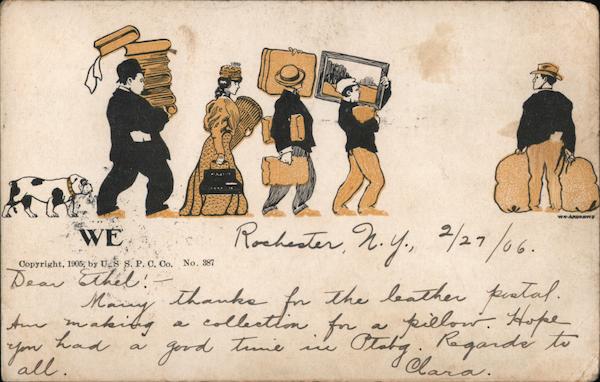 WE
Rochester, N.Y., 2/27/06.
Copyright, 1905, by U. S S. P. C. Co. No. 387
Dear Ethel:—
Many thanks for the leather postal.
Am making a collection for a pillow. Hope
you had a good time in Ptsbg. Regards to
all. Clara.